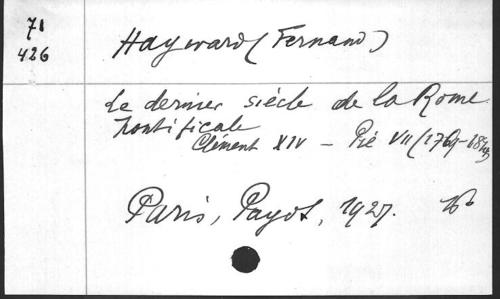 71
426
Hayward (Fernand)
Le dernier siècle de la Rome
Pontificale
Clément XIV - Pié VII (1769-18
Paris, Payot, 1927.